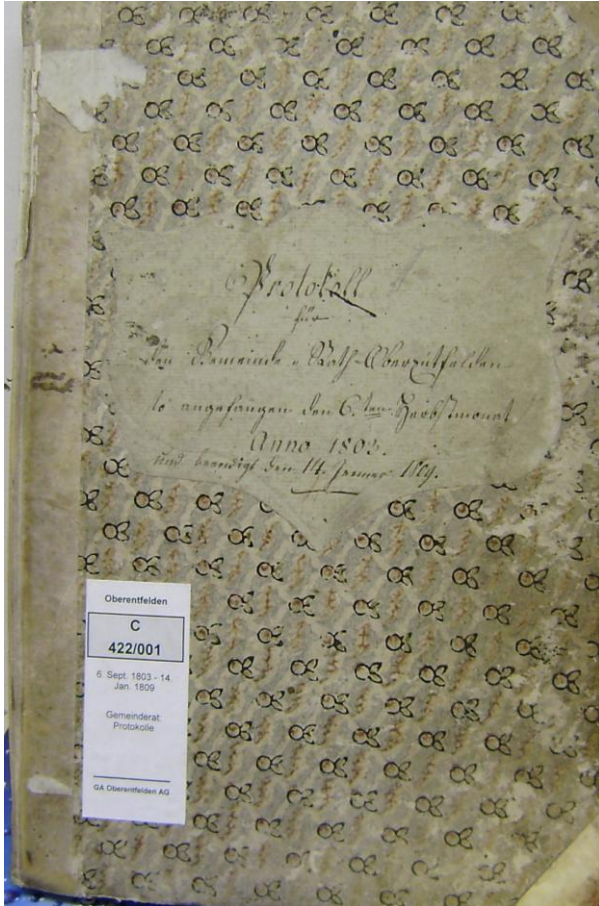 Protokoll
für
den Gemeinde-Rath Oberentfelden
so angefangen den 6.ten Herbstmonat
Anno 1803.
und beendigt den 14. Jenner 1809.
Oberentfelden
C
422/001
6. Sept. 1803 - 14.
Jan. 1809
Gemeinderat:
Protokolle
GA Oberentfelden AG